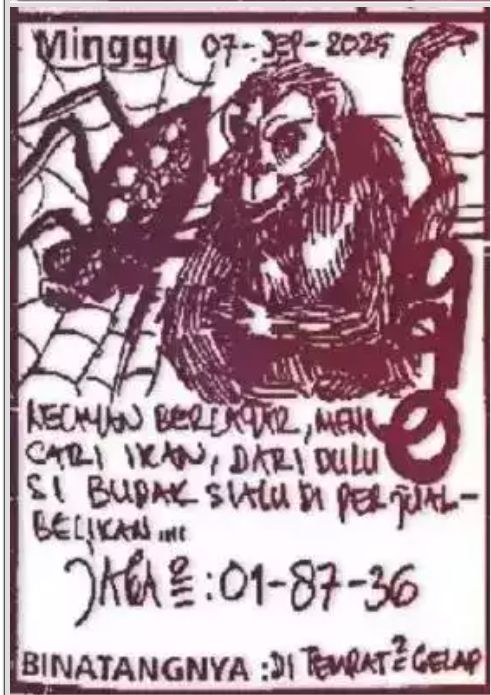 Minggu 07-SEP-2025
BERCADAR, MEN
CARI IKAN, DARI DULU
SI BUDAK SIALU DI PERJUAL-
BELIKAN...
JAGA²=:01-87-36
BINATANGNYA :DI TEMPAT² GELAP